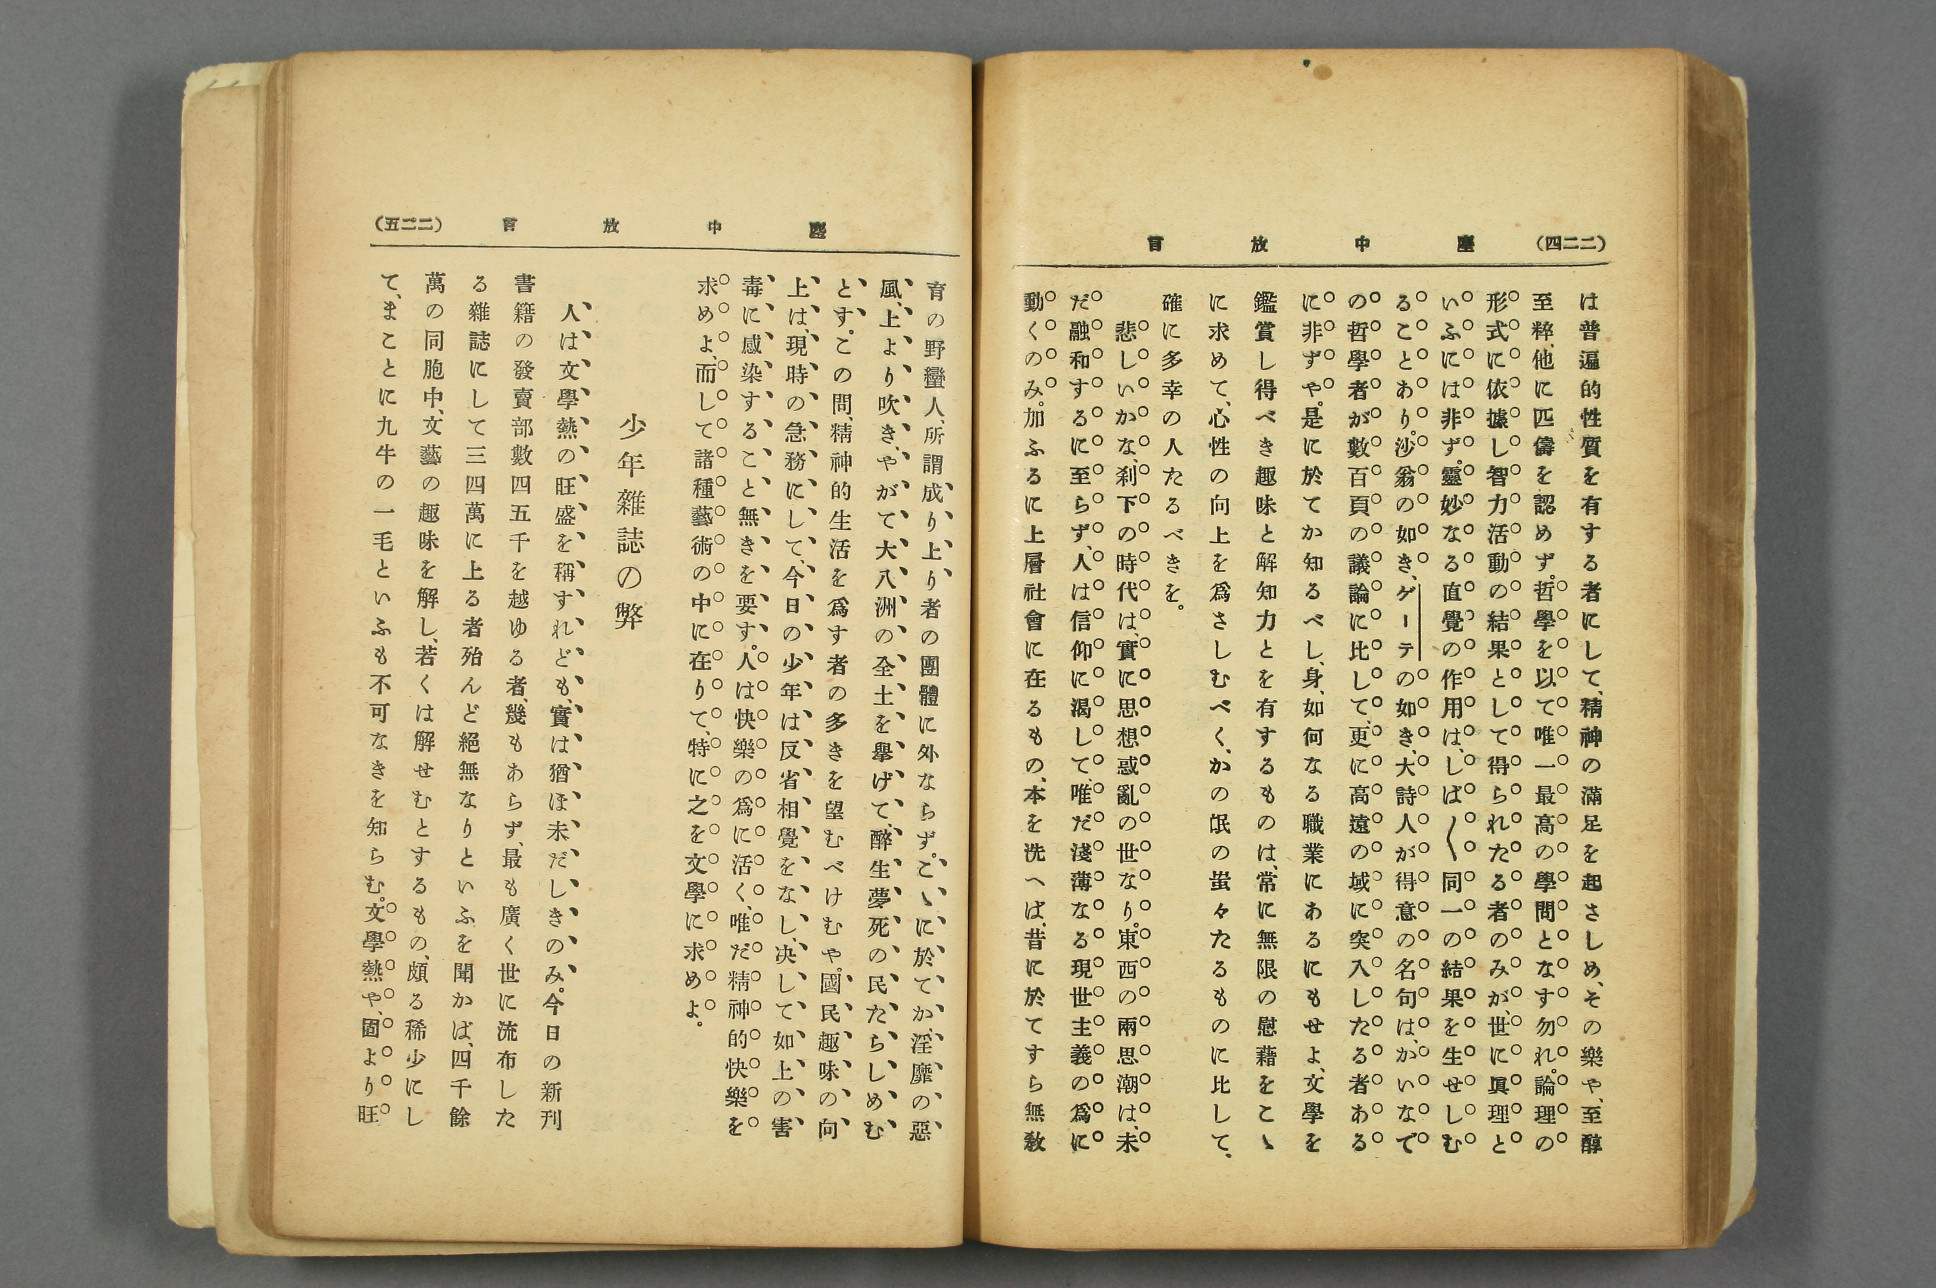 (二二四) 塵中放言
は普遍的性質を有する者にして、精神の滿足を起さしめ、その樂や、至醇
至粹、他に匹儔を認めず。哲學を以て唯一最高の學問となす勿れ。論理の
形式に依據し智力活動の結果として得られたる者のみが、世に眞理と
いふには非ず。靈妙なる直覺の作用は、しば〱同一の結果を生せしむ
ることあり。沙翁の如き、ゲーテの如き、大詩人が得意の名句は、かいなで
の哲學者が數百頁の議論に比して、更に高遠の域に突入したる者ある
に非ずや。是に於てか知るべし、身、如何なる職業にあるにもせよ、文學を
鑑賞し得べき趣味と解知力とを有するものは、常に無限の慰藉をこゝ
に求めて、心性の向上を爲さしむべく、かの氓の蚩々たるものに比して、
確に多幸の人たるべきを。
悲しいかな、刹下の時代は、實に思想惑亂の世なり。東西の兩思潮は、未
だ融和するに至らず、人は信仰に渴して、唯だ淺薄なる現世主義の爲に
動くのみ。加ふるに上層社會に在るもの、本を洗へば、昔に於てすら無敎
塵中放言 (二二五)
育の野蠻人、所謂成り上り者の團體に外ならず。こゝに於てか、淫靡の惡
風、上より吹き、やがて大八洲の全土を擧げて、醉生夢死の民たらしめむ
とす。この間、精神的生活を爲す者の多きを望むべけむや。國民趣味の向
上は、現時の急務にして、今日の少年は反省相覺をなし、决して如上の害
毒に感染すること無きを要す。人は快樂の爲に活く、唯だ精神的快樂を
求めよ、而して諸種藝術の中に在りて、特に之を文學に求めよ。
少年雜誌の弊
人は文學熱の旺盛を稱すれども、實は猶ほ未だしきのみ。今日の新刊
書籍の發賣部數四五千を越ゆる者、幾もあらず、最も廣く世に流布した
る雜誌にして三四萬に上る者殆んど絕無なりといふを聞かば、四千餘
萬の同胞中、文藝の趣味を解し、若くは解せむとするもの、頗る稀少にし
て、まことに九牛の一毛といふも不可なきを知らむ。文學熱や、固より旺